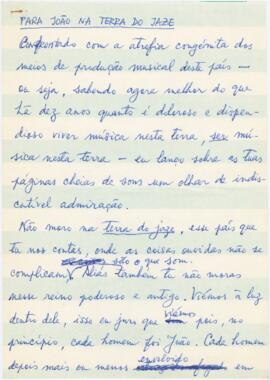 PARA JOÃO NA TERRA DO JAZE
Confrontado com a atrofia congénita dos
meios de produção musical deste país —
ou seja, sabendo agora melhor do que
há dez anos quanto é doloroso e dispen-
dioso viver música nesta terra, ser mú-
sica nesta terra — eu lanço sobre as tuas
páginas cheias de sons um olhar de indis-
cutível admiração.
Não moro na terra do jaze, esse país que
tu nos contas, onde as coisas ouvidas não se
complicam, são o que som.
Aliás também tu não moras
nesse reino poderoso e antigo. Viémos à luz
dentro dele, isso eu juro que viémos pois, no
princípio, cada homem foi João. Cada homem
depois mais ou menos em